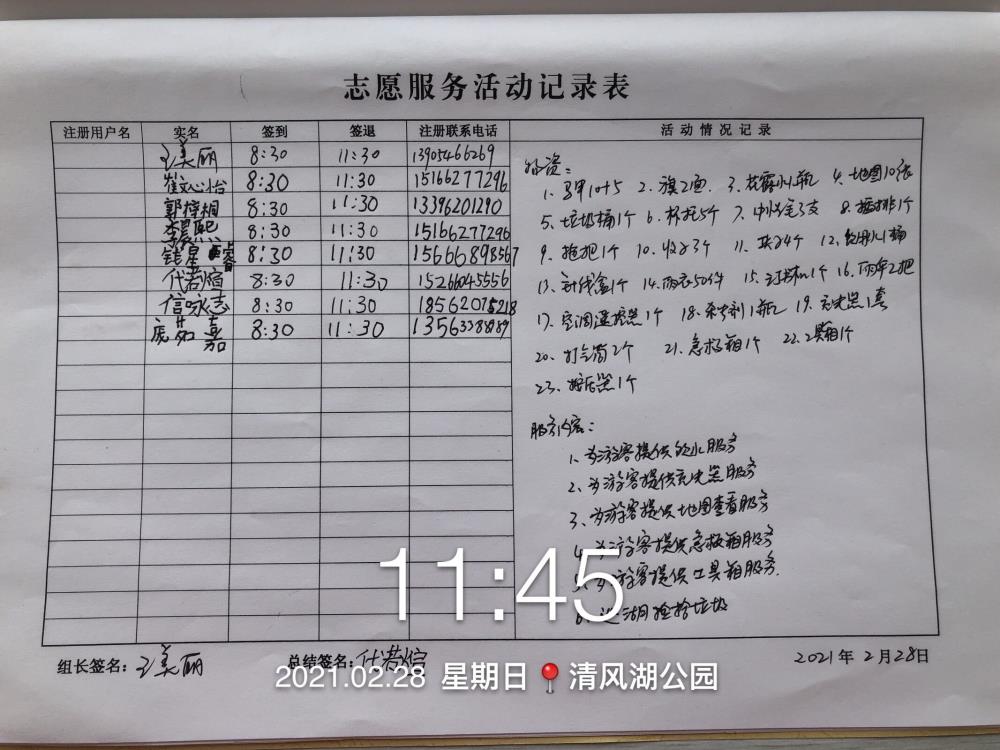 志愿服务活动记录表
注册用户名 实名 签到 签退 注册联系电话 活动情况记录
王美丽 8:30 11:30 13905466269
崔文心怡 8:30 11:30 15166277296
郭梓桐 8:30 11:30 13396201290
8:30 11:30 15166277296
钱星 8:30 11:30 15666898567
代若煊 8:30 11:30 15266045556
信咏志 8:30 11:30 18562075218
庞茹嘉 8:30 11:30
物资:
1、马甲10+5 2、旗2面 3、花露水1瓶 4、地图10张
5、垃圾桶1个 6、杯托5个 7、中性笔3支 8、插排1个
9、拖把1个 10、 3个 11、夹子4个 12、饮用水1桶
13、针线盒1个 14、雨衣50件 15、 1个 16、雨伞2把
17、空调遥控器1个 18、 1瓶 19、充电器1套
20、打气筒2个 21、急救箱1个 22、工具箱1个
23、 1个
服务内容:
1、为游客提供饮水服务
2、为游客提供充电器服务
3、为游客提供地图查看服务
4、为游客提供急救箱服务
5、为游客提供工具箱服务.
6、 湖捡拾垃圾
11:45
组长签名:王美丽 总结签名:代若煊 2021年2月28日
2021.02.28 星期日 清风湖公园